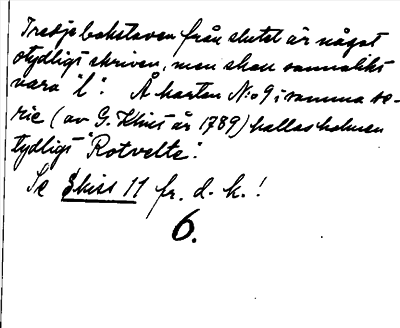 Tredje bokstaven från slutet är något
otydligt skriven, men skall sannolikt
vara "l". Å kartan N:o 9 i samma se-
rie (av G. Klint år 1789) kallas holmen
tydligt "Rotvelte".
Se Skiss 11 fr. d. k.!
6.